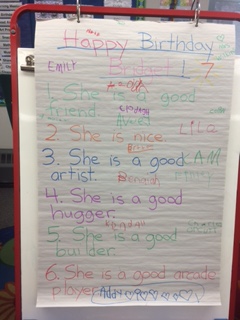 Happy Birthday
EMILY
7
1. She is a good
friend.
2. She is nice. Lila
3. She is a good AM
artist.
4. She is a good
hugger.
5. She is a good
builder.
6. She is a good arcade
player. Addy